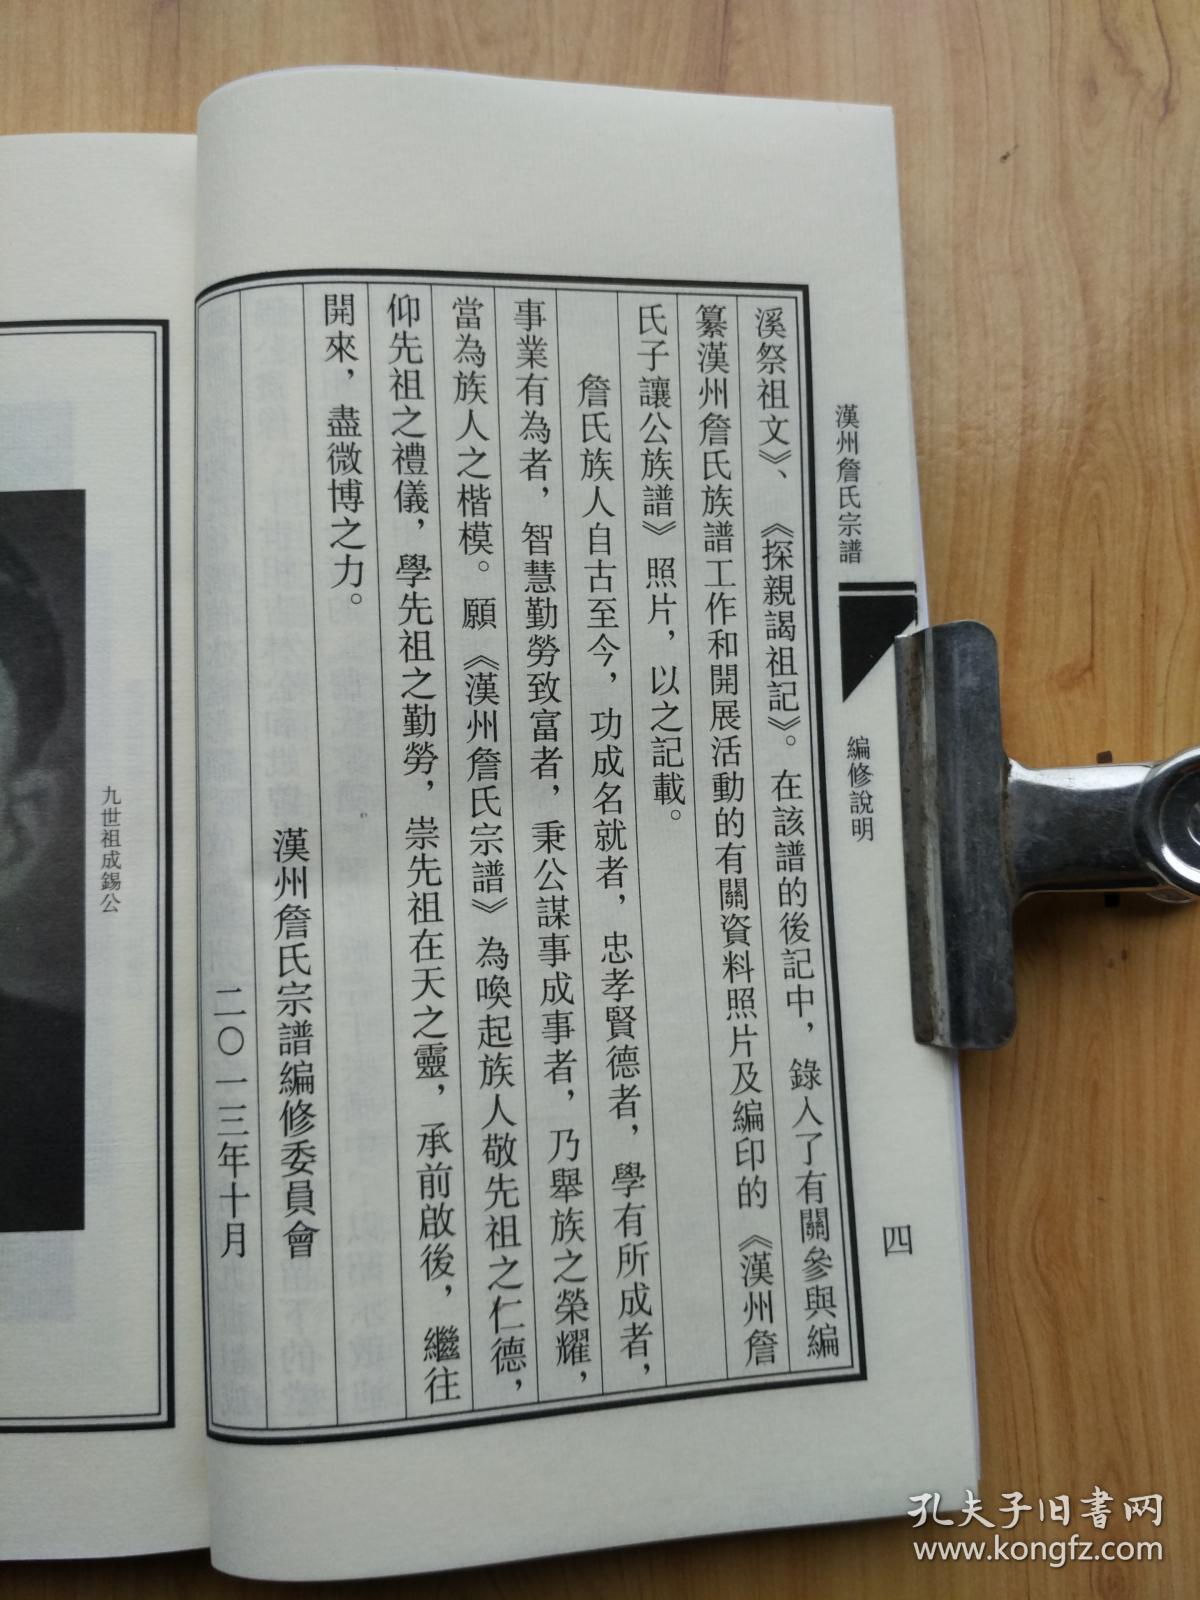 漢州詹氏宗譜
編修說明
四
溪祭祖文》、《探親謁祖記》。在該譜的後記中，錄入了有關參與編
纂漢州詹氏族譜工作和開展活動的有關資料照片及編印的《漢州詹
氏子讓公族譜》照片，以之記載。
詹氏族人自古至今，功成名就者，忠孝賢德者，學有所成者，
事業有為者，智慧勤勞致富者，秉公謀事成事者，乃舉族之榮耀，
當為族人之楷模。願《漢州詹氏宗譜》為喚起族人敬先祖之仁德，
仰先祖之禮儀，學先祖之勤勞，崇先祖在天之靈，承前啟後，繼往
開來，盡微博之力。
漢州詹氏宗譜編修委員會
二〇一三年十月
九世祖成錫公
孔夫子旧书网
www.kongfz.com